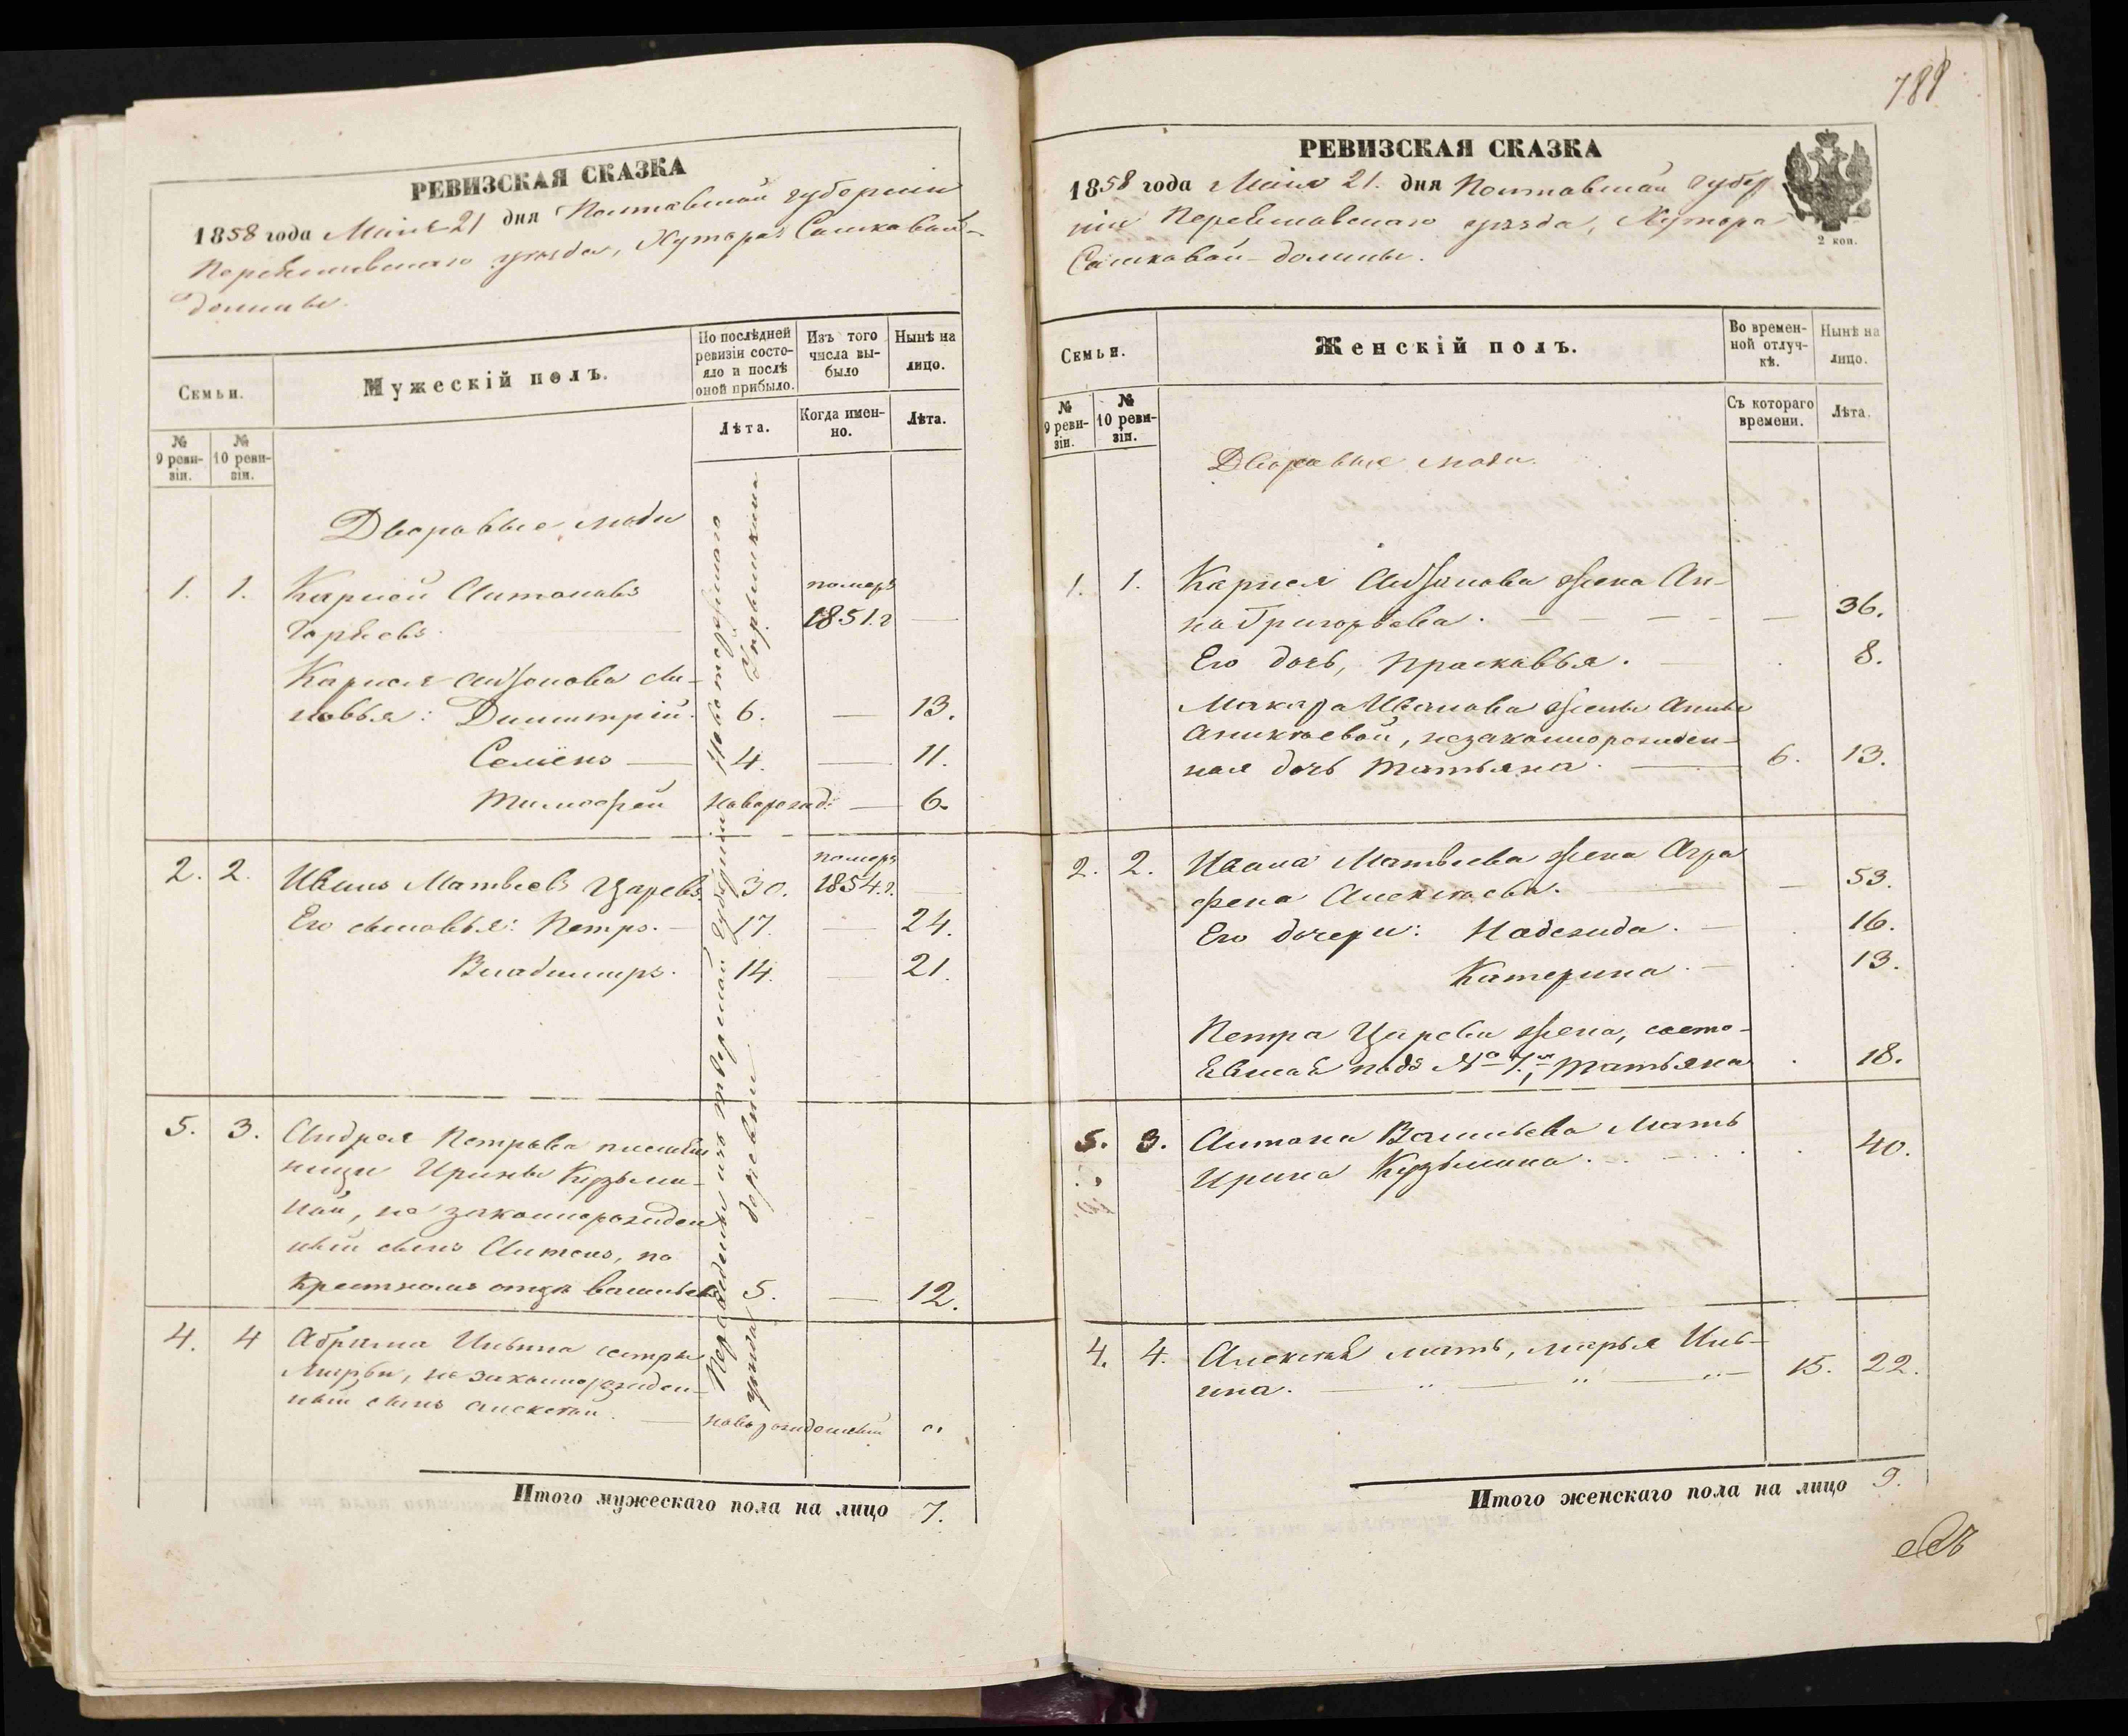 РЕВИЗСКАЯ СКАЗКА
1858 года Маія 21 дня Полтавской губерніи
Переяславскаго уѣзда, Хутора Сошковой-
долины.
Семьи.
Мужескій полъ.
По послѣдней ревизіи состояло и послѣ оной прибыло.
Изъ того числа выбыло
Нынѣ на лицо.
№ 9 ревизіи.
№ 10 ревизіи.
Лѣта.
Когда именно.
Лѣта.
Дворовые люди
1. 1. Карпъ Антоновъ померъ
1851.г —
Карпа Антонова сы-
новья: Димитрій. 6. — 13.
Семёнъ — 4. — 11.
Тимофей новорожд: — 6.
2. 2. Иванъ Матвеевъ Царевъ. 30. померъ 1854.г. —
Его сыновья: Петръ. — 17. — 24.
Владимиръ. 14. — 21.
5. 3. Андрея Петрова племян
ницы Ирины Кузьми-
ной, не законнорожден
ный сынъ Антонъ, по
крестному отцу Васильевъ 5. — 12.
4. 4 Абрама Ильина сестры
Марьи, не законнорожден-
ный сынъ Алексѣй. — новорожденный "
Переведены изъ Тверской губерніи Новоторжскаго
уѣзда деревни
Итого мужескаго пола на лицо 7.
788
РЕВИЗСКАЯ СКАЗКА
1858 года Маія 21. дня Полтавской губер
ніи Переяславскаго уѣзда, Хутора
Сошковой-долины.
2 коп.
Семьи.
Женскій полъ.
Во временной отлучкѣ.
Нынѣ на лицо.
№ 9 ревизіи.
№ 10 ревизіи.
Съ котораго времени.
Лѣта.
Дворовые люди.
1. 1. Карпа Антонова жена Ан-
на Григорьева. — — — — — 36.
Его дочь, Прасковья. — . 8.
Макара Иванова жены Анны
Алексѣевой, незаконнорожден-
ная дочь Татьяна. — 6. 13.
2. 2. Ивана Матвѣева жена Агра
фена Алексѣева. — — 53.
Его дочери: Надежда. — . 16.
Катерина. — . 13.
Петра Царева жена, состо-
явшая подъ № 7.м, Татьяна . 18.
5. 3. Антона Васильева Мать
Ирина Кузьмина. . 40.
4. 4. Алексѣя мать, Марья Иль-
ина. — " — " — " — 15. 22.
Итого женскаго пола на лицо 9.